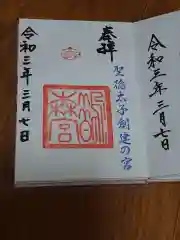 奉拝
聖徳太子創建の宮
令和三年三月七日
令和三年三月七日